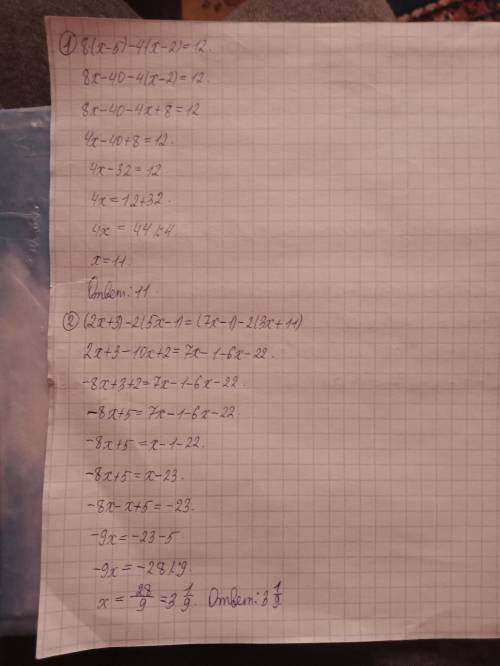 ① 8(x-5)-4(x-2)=12.
8x-40-4(x-2)=12.
8x-40-4x+8=12
4x-40+8=12.
4x-32=12
4x=12+32.
4x = 44 |:4
x=11.
Ответ: 11
② (2x+3)-2(5x-1)=(7x-1)-2(3x+11)
2x+3-10x+2=7x-1-6x-22.
-8x+3+2=7x-1-6x-22.
-8x+5=7x-1-6x-22.
-8x+5=x-1-22.
-8x+5=x-23.
-8x-x+5=-23.
-9x=-23-5
-9x=-28 |:9.
x = 28/9 = 3 1/9. Ответ: 3 1/9.